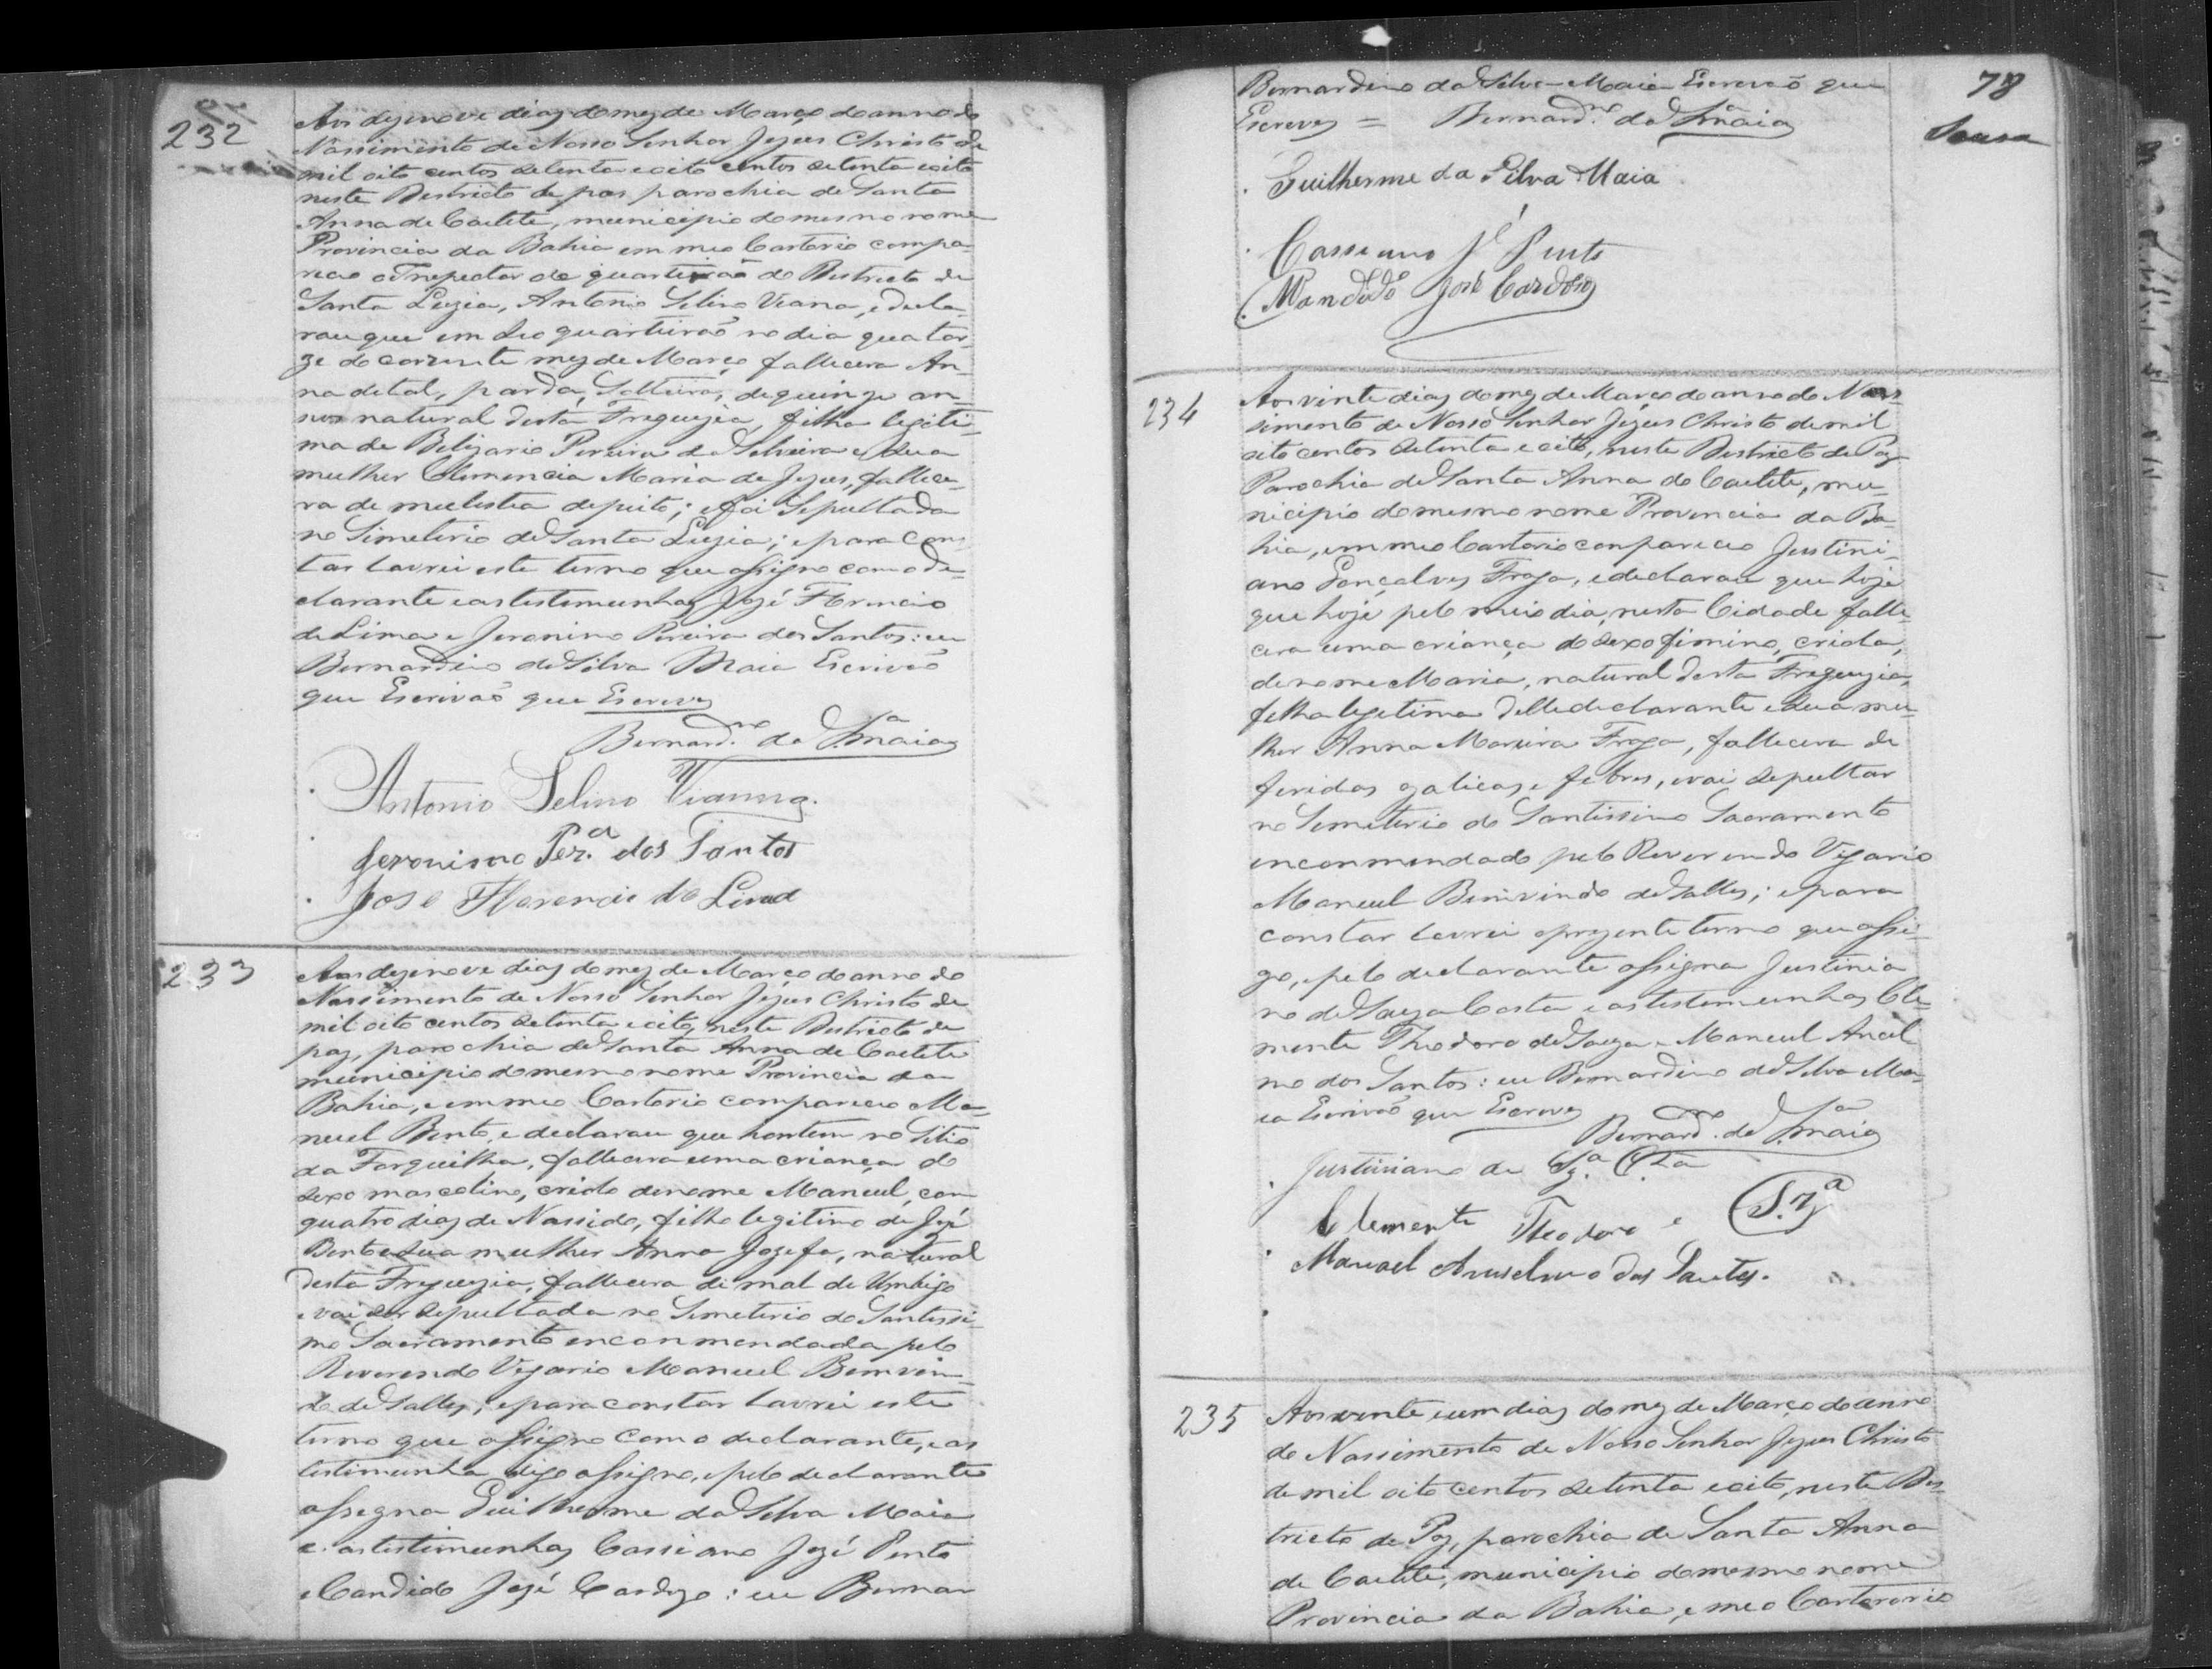 232
Aos dezenove dias do mez de Março do anno do
Nassimento de Nosso Senhor Jezus Christo de
mil oito centos setenta e oito centos setenta e oito
neste Destricto de pas parochia de Santa
Anna de Caetete, municipio do mesmo nome
Provincia da Bahia em meo Cartorio compa-
receo o Inspector de quarteirão do Destricto de
Santa Luzia, Antonio Selino Viana, e decla-
rou que em seo quarteirão no dia quator-
ze do corrente mez de Março fallecera An-
na de tal, parda, Solteira, de quinze an-
nos natural desta Freguezia, filha legiti-
ma de Belizario Pereira da Silveira e sua
mulher Clemencia Maria de Jezus, fallece-
ra de mulestia de peito; e foi Sepultada
no Simeterio de Santa Luzia; e para Cons-
tar lavrei este termo que assigno com o de-
clarante e as testemunhas José Florencio
de Lima e Jeronimo Pereira dos Santos: eu
Bernardino da Silva Maia Escrivão
que Escrivão que Escrevy
Bernard.no da S.a Maia
Antonio Selino Vianna.
Jeronimo Per.a dos Santos
Jose Florencio de Lima
233
Aos dezenove dias do mez de Março do anno do
Nassimento de Nosso Senhor Jezus Christo de
mil oito centos setenta e oito, neste Destricto de
paz, parochia de Santa Anna de Caetete
municipio do mesmo nome Provincia da
Bahia, e em meo Cartorio compareceo Ma-
nuel Bento, e declarou que hontem no Sitio
da Forquilha, fallecera uma criança do
sexo mascolino, criolo de nome Manuel, com
quatro dias de Nassido, filho legitimo de José
Bento e sua mulher Anna Jozefa, natural
desta Freguezia, fallecera de mal de Umbigo
e vai ser sepultada no Simeterio do Santissi-
mo Sacramento encommendada pelo
Reverendo Vigario Manuel Bemvin-
do de Salles; e para constar lavrei este
termo que assigno com o declarante, e as
testimunha digo assigno, e pelo declarante
assegna Guilherme da Silva Maia
e as testimunhas Cassiano José Pinto
e Candido José Cardozo: eu Bernar
78
Sousa
Bernardino da Silva Maia Escrevão que
Escrevy = Bernard.no da S.a Maia
Guilherme da Silva Maia
Cassiano J.e Pinto
Candido José Cardoso
234
Aos vinte dias do mez de Março do anno do Nas-
simento de Nosso Senhor Jezus Christo de mil
oito centos setenta e oito, neste Destricto de Paz
Parochia de Santa Anna de Caetete, mu-
nicipio do mesmo nome Provincia da Ba-
hia, em meo Cartorio compareceo Justini-
ano Gonçalves Fraga, e declarou que hoje
que hoje pelo meio dia, nesta Cidade falle-
cera uma criança do sexo fimino, criola,
de nome Maria, natural desta Freguezia,
filha legetima delle declarante e sua mu-
lher Anna Moreira Fraga, fallecera de
feridas galicas e febres, e vai sepultar
no Semeterio do Santissimo Sacramento
encommendado pelo Reverendo Vigario
Manuel Bemvindo de Salles; e para
constar lavrei o prezente termo que assi-
go, e pelo declarante assigna Justinia
no de Souza Costa e as testemunhas Cle-
mente Theodoro de Souza e Manuel Ancel
mo dos Santos: eu Bernardino da Silva Ma-
ia Escrivão que Escrevy
Bernard.no da S.a Maia
Justiniano de Sz.a C.ta
Clemente Theodoro e S.z.a
Manoel Anselmo dos Santos.
235
Aos vinte e um dias do mez de Março do anno
do Nassimento de Nosso Senhor Jezus Christo
de mil oito centos setenta e oito, neste Des-
tricto de Paz, parochia de Santa Anna
de Caetete, municipio do mesmo nome
Provincia da Bahia, e meo Cartororio